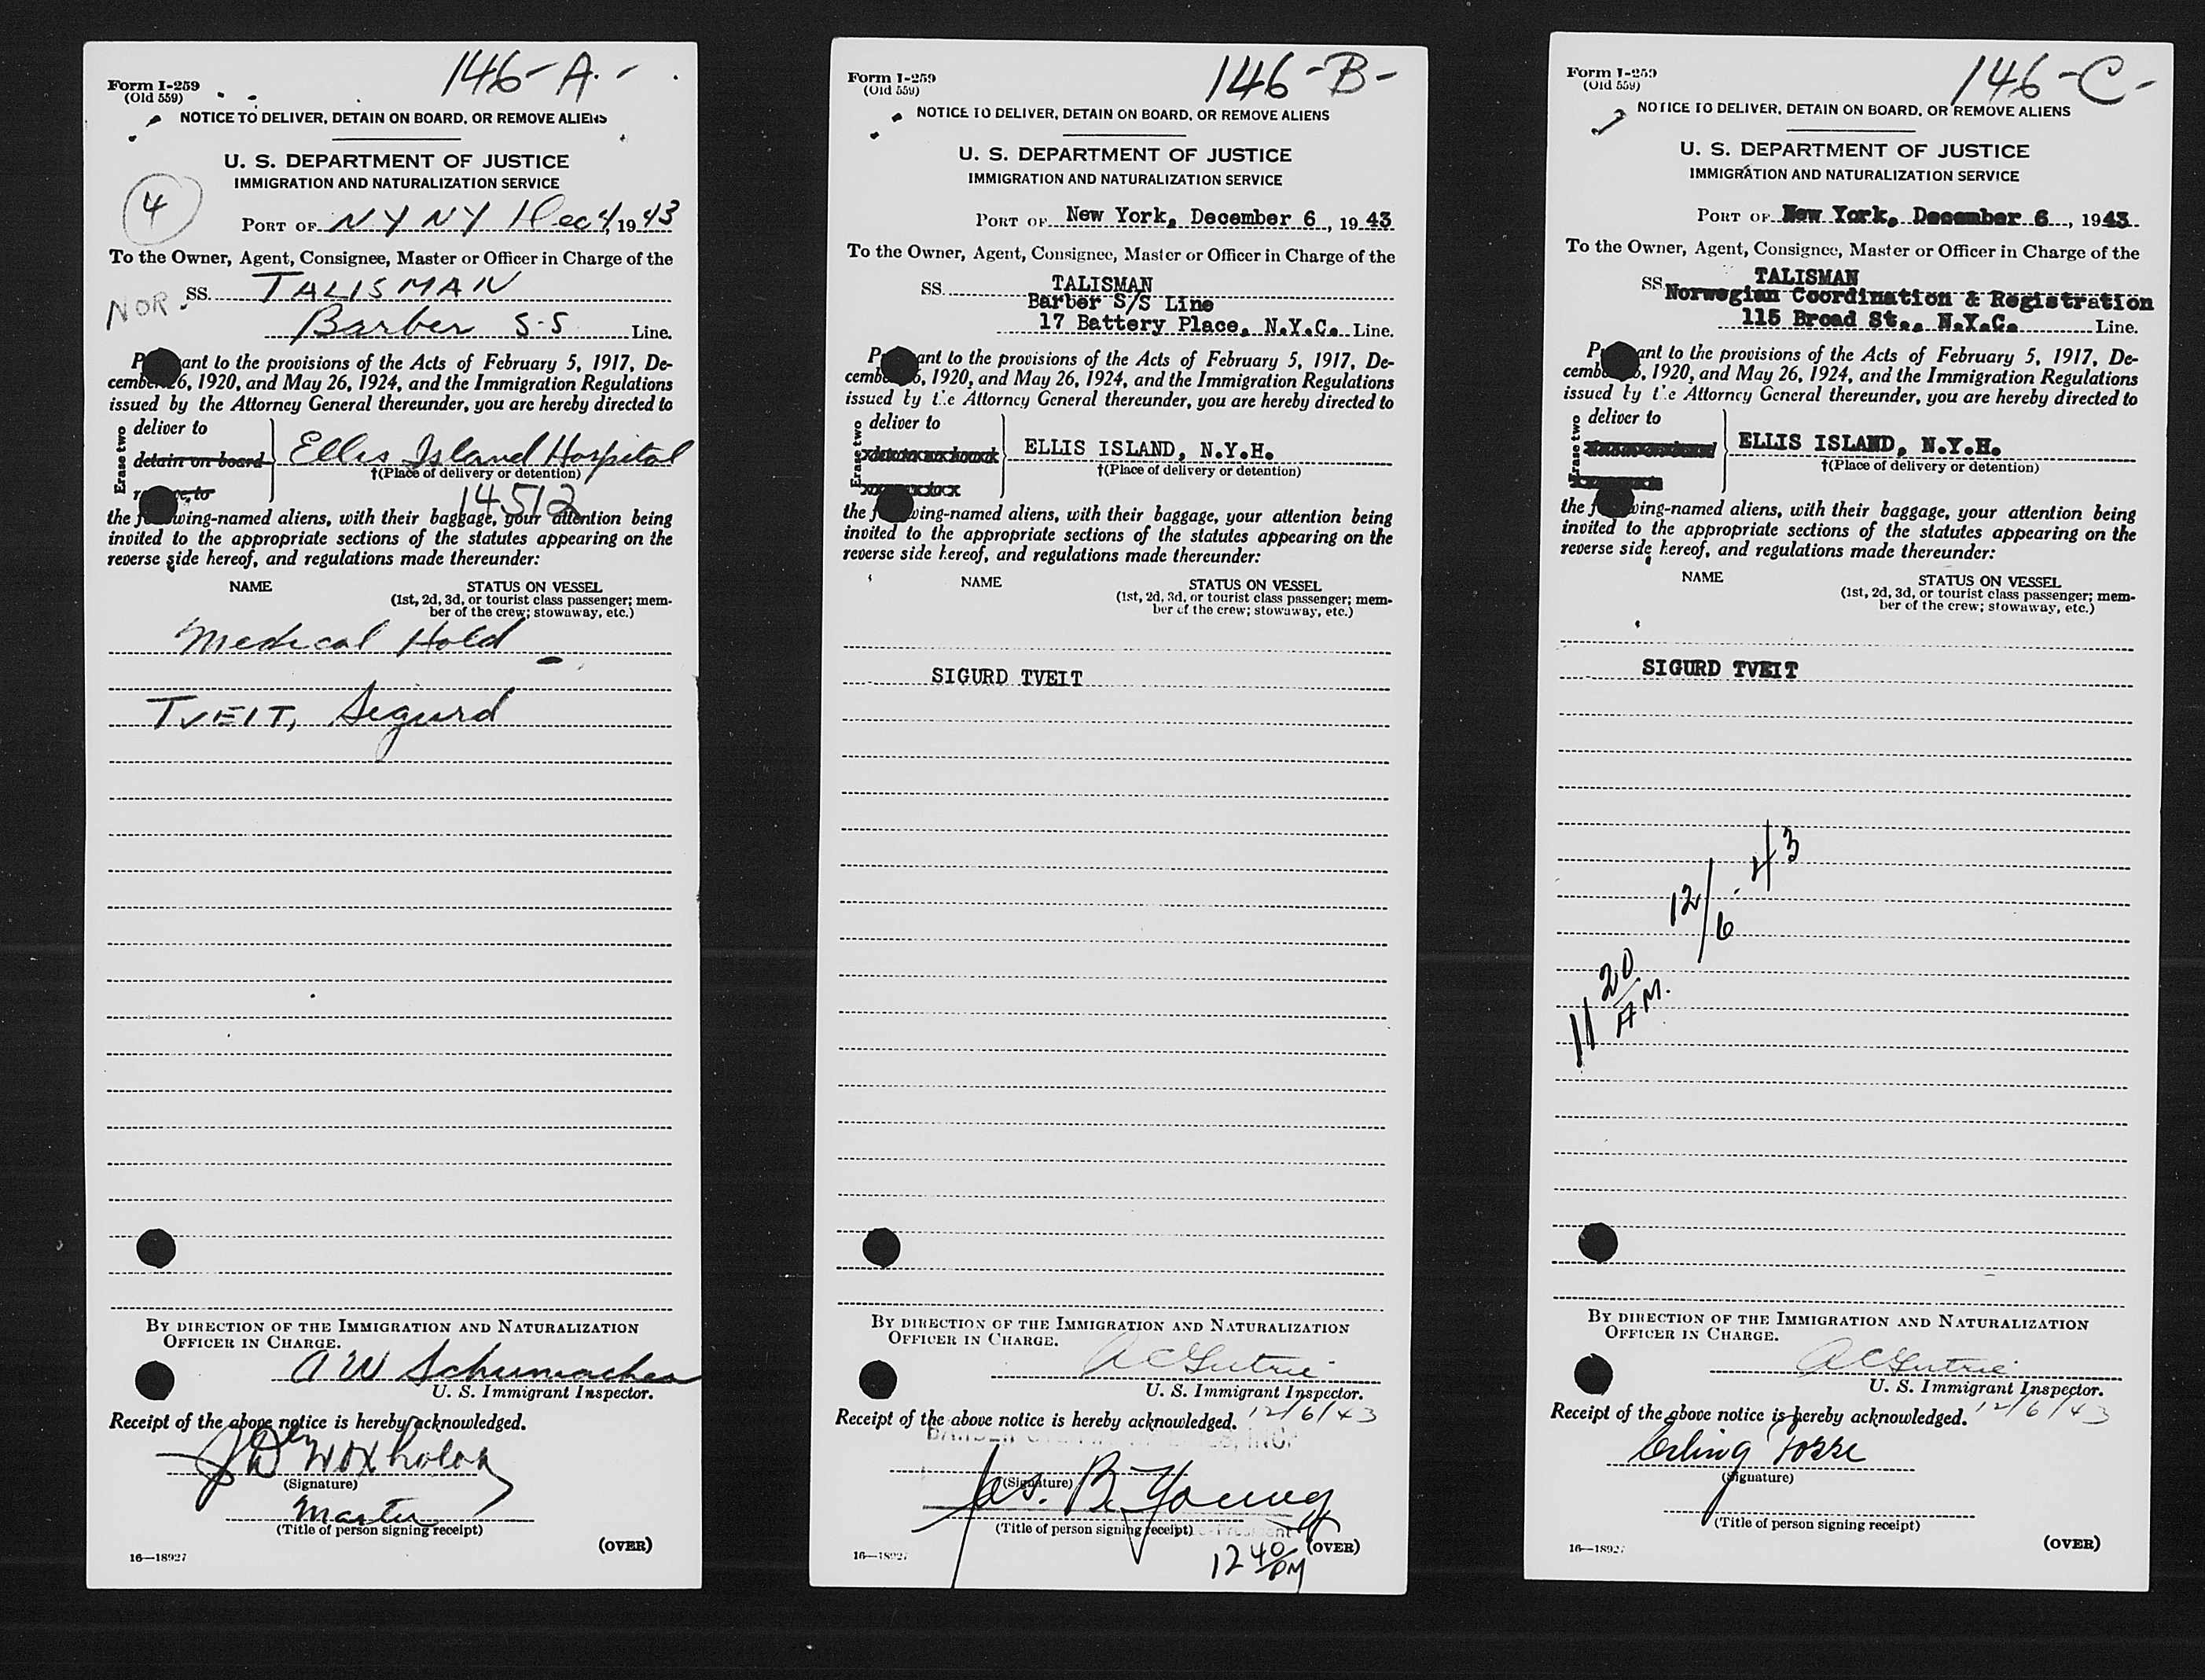 146-A.-
Form I-259
(Old 559)
NOTICE TO DELIVER, DETAIN ON BOARD, OR REMOVE ALIENS
U. S. DEPARTMENT OF JUSTICE
IMMIGRATION AND NATURALIZATION SERVICE
4
PORT OF NY NY Dec 4, 1943
To the Owner, Agent, Consignee, Master or Officer in Charge of the
NOR. SS. TALISMAN
Barber S-S Line.
P ant to the provisions of the Acts of February 5, 1917, De-
cember 26, 1920, and May 26, 1924, and the Immigration Regulations
issued by the Attorney General thereunder, you are hereby directed to
Erase two
deliver to
detain on board
remove to
Ellis Island Hospital
†(Place of delivery or detention)
14512
the f wing-named aliens, with their baggage, your attention being
invited to the appropriate sections of the statutes appearing on the
reverse side hereof, and regulations made thereunder:
NAME STATUS ON VESSEL
(1st, 2d, 3d, or tourist class passenger; mem-
ber of the crew; stowaway, etc.)
Medical Hold
TVEIT, Sigurd
BY DIRECTION OF THE IMMIGRATION AND NATURALIZATION
OFFICER IN CHARGE.
A W Schumacher
U. S. Immigrant Inspector.
Receipt of the above notice is hereby acknowledged.
(Signature)
Master
(Title of person signing receipt)
(OVER)
16—18927
146-B-
Form I-259
(Old 559)
NOTICE TO DELIVER, DETAIN ON BOARD, OR REMOVE ALIENS
U. S. DEPARTMENT OF JUSTICE
IMMIGRATION AND NATURALIZATION SERVICE
PORT OF New York, December 6, 1943
To the Owner, Agent, Consignee, Master or Officer in Charge of the
SS. TALISMAN
Barber S/S Line
17 Battery Place, N.Y.C. Line.
P ant to the provisions of the Acts of February 5, 1917, De-
cembe 6, 1920, and May 26, 1924, and the Immigration Regulations
issued by the Attorney General thereunder, you are hereby directed to
Erase two
deliver to
ELLIS ISLAND, N.Y.H.
†(Place of delivery or detention)
the f wing-named aliens, with their baggage, your attention being
invited to the appropriate sections of the statutes appearing on the
reverse side hereof, and regulations made thereunder:
NAME STATUS ON VESSEL
(1st, 2d, 3d, or tourist class passenger; mem-
ber of the crew; stowaway, etc.)
SIGURD TVEIT
BY DIRECTION OF THE IMMIGRATION AND NATURALIZATION
OFFICER IN CHARGE.
U. S. Immigrant Inspector.
Receipt of the above notice is hereby acknowledged. 12/6/43
(Signature)
Jas. B. Young
(Title of person signing receipt)
12 40 PM
(OVER)
16—18927
146-C-
Form I-259
(Old 559)
NOTICE TO DELIVER, DETAIN ON BOARD, OR REMOVE ALIENS
U. S. DEPARTMENT OF JUSTICE
IMMIGRATION AND NATURALIZATION SERVICE
PORT OF New York, December 6, 1943
To the Owner, Agent, Consignee, Master or Officer in Charge of the
SS. TALISMAN
Norwegian Coordination & Registration
115 Broad St., N.Y.C. Line.
P ant to the provisions of the Acts of February 5, 1917, De-
cembe 6, 1920, and May 26, 1924, and the Immigration Regulations
issued by the Attorney General thereunder, you are hereby directed to
Erase two
deliver to
ELLIS ISLAND, N.Y.H.
†(Place of delivery or detention)
the f wing-named aliens, with their baggage, your attention being
invited to the appropriate sections of the statutes appearing on the
reverse side hereof, and regulations made thereunder:
NAME STATUS ON VESSEL
(1st, 2d, 3d, or tourist class passenger; mem-
ber of the crew; stowaway, etc.)
SIGURD TVEIT
12/6.43
11 20 A.M.
BY DIRECTION OF THE IMMIGRATION AND NATURALIZATION
OFFICER IN CHARGE.
U. S. Immigrant Inspector.
Receipt of the above notice is hereby acknowledged. 12/6/43
Erling
(Signature)
(Title of person signing receipt)
(OVER)
16—18927